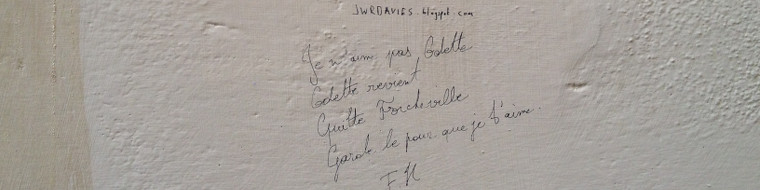 JWRDAVIES.blogspot.com
Je n'aim pas Odette
Odette revient
Quitte Forcheville
Garde le pour que je t'aime.
F H